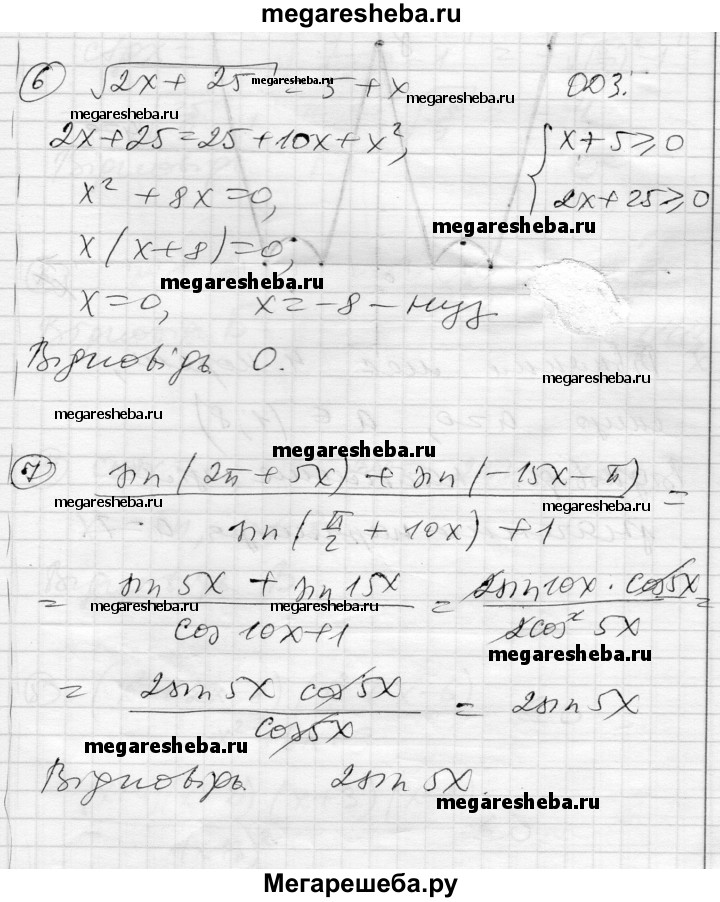 megaresheba.ru
6 √2x + 25 = 5 + x ОДЗ:
megaresheba.ru
megaresheba.ru
megaresheba.ru
2x + 25 = 25 + 10x + x², { x + 5 ≥ 0
x² + 8x = 0, 2x + 25 ≥ 0
megaresheba.ru
x(x + 8) = 0,
megaresheba.ru
x = 0, x = -8 -
Відповідь 0.
megaresheba.ru
megaresheba.ru
megaresheba.ru
7 (sin(2π + 5x) + sin(-15x - π)) / (sin(π/2 + 10x) + 1) =
megaresheba.ru
megaresheba.ru
= (sin 5x + sin 15x) / (cos 10x + 1) = (2sin 10x · cos 5x) / (2cos² 5x) =
megaresheba.ru
megaresheba.ru
megaresheba.ru
= (2sin 5x cos 5x) / (cos 5x) = 2sin 5x
megaresheba.ru
Відповідь. 2sin 5x.
megaresheba.ru
Мегарешеба.ру